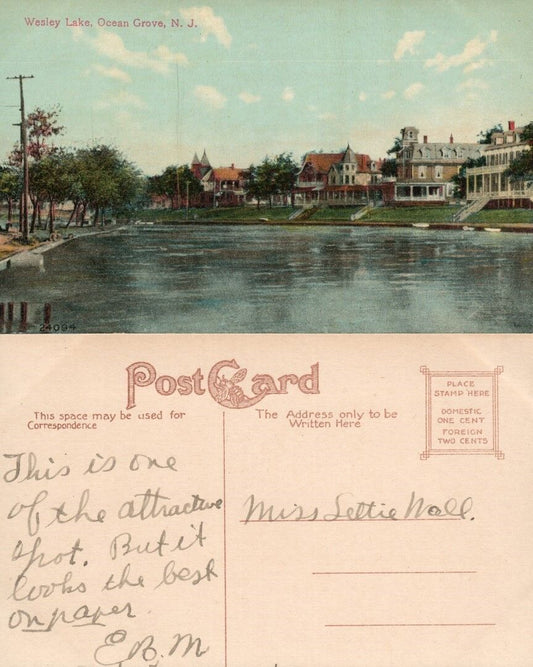 Wesley Lake, Ocean Grove, N. J.
24094
Post Card
This space may be used for
Correspondence
The Address only to be
Written Here
PLACE
STAMP HERE
DOMESTIC
ONE CENT
FOREIGN
TWO CENTS
This is one
of the attractive
spot. But it
looks the best
on paper.
E.B.M
Miss Lettie Wall.